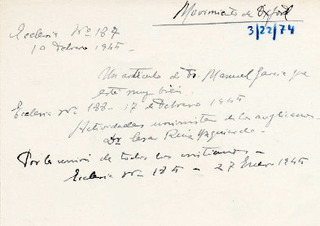 Movimiento de Oxford
3/22/74
Ecclesia Nº 187
10 Febrero 1945
Un artículo de D. Manuel Garcia que
está muy bién.
Ecclesia Nº 188 - 17 de Febrero 1945
Actividades unionistas de los anglicanos -
Dr. Cesar Ruiz Izquierdo -
Por la unión de todos los cristianos -
Ecclesia Nº 185 - 27 Enero 1945